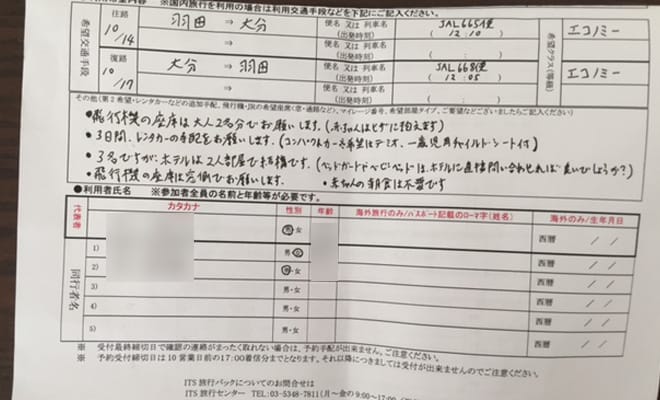 ※国内旅行を利用の場合は利用交通手段などを下記にご記入ください。
希望交通手段
往路
10/14
羽田 ⇒ 大分
便名 又は 列車名 JAL665便
(出発時刻) (12:10)
希望クラス(等級)
エコノミー
⇒
便名 又は 列車名
(出発時刻) ( : )
復路
10/17
大分 ⇒ 羽田
便名 又は 列車名 JAL668便
(出発時刻) (12:05)
エコノミー
⇒
便名 又は 列車名
(出発時刻) ( : )
その他(第2希望・レンタカーなどの追加手配、飛行機・JRの希望座席(窓・通路など)、マイレージ番号、希望部屋タイプ、ご要望などございましたらご記入ください)
•飛行機の座席は大人2名分でお願いします。(赤ちゃんはヒザに抱えます)
•3日間、レンタカーの手配をお願いします。(コンパクトカーを希望はデミオ、一歳児用チャイルドシート付)
•3名ですが、ホテルは2人部屋で結構です。(ベッドガードやベビーベッドは、ホテルに直接問い合わせれば良いでしょうか?)
•飛行機の座席は窓側でお願いします。 •赤ちゃんの朝食は不要です
●利用者氏名 ※参加者全員の名前と年齢等が必要です。
カタカナ 性別 年齢 海外旅行のみ/パスポート記載のローマ字(姓名) 海外のみ/生年月日
代表者 男・女 西暦 / /
同行者名
1) 男・女 西暦 / /
2) 男・女 西暦 / /
3) 男・女 西暦 / /
4) 男・女 西暦 / /
5) 男・女 西暦 / /
※ 受付最終締切日で確認の連絡がまったく取れない場合は、予約手配が出来ません。ご注意ください。
※ 予約受付締切日は10営業日前の17:00着信分までとなります。それ以降につきましては受付が出来ませんのでご注意ください。
ITS 旅行パックについてのお問合せは
ITS 旅行センター TEL:03-5348-7811(月~金の9:00~17:00